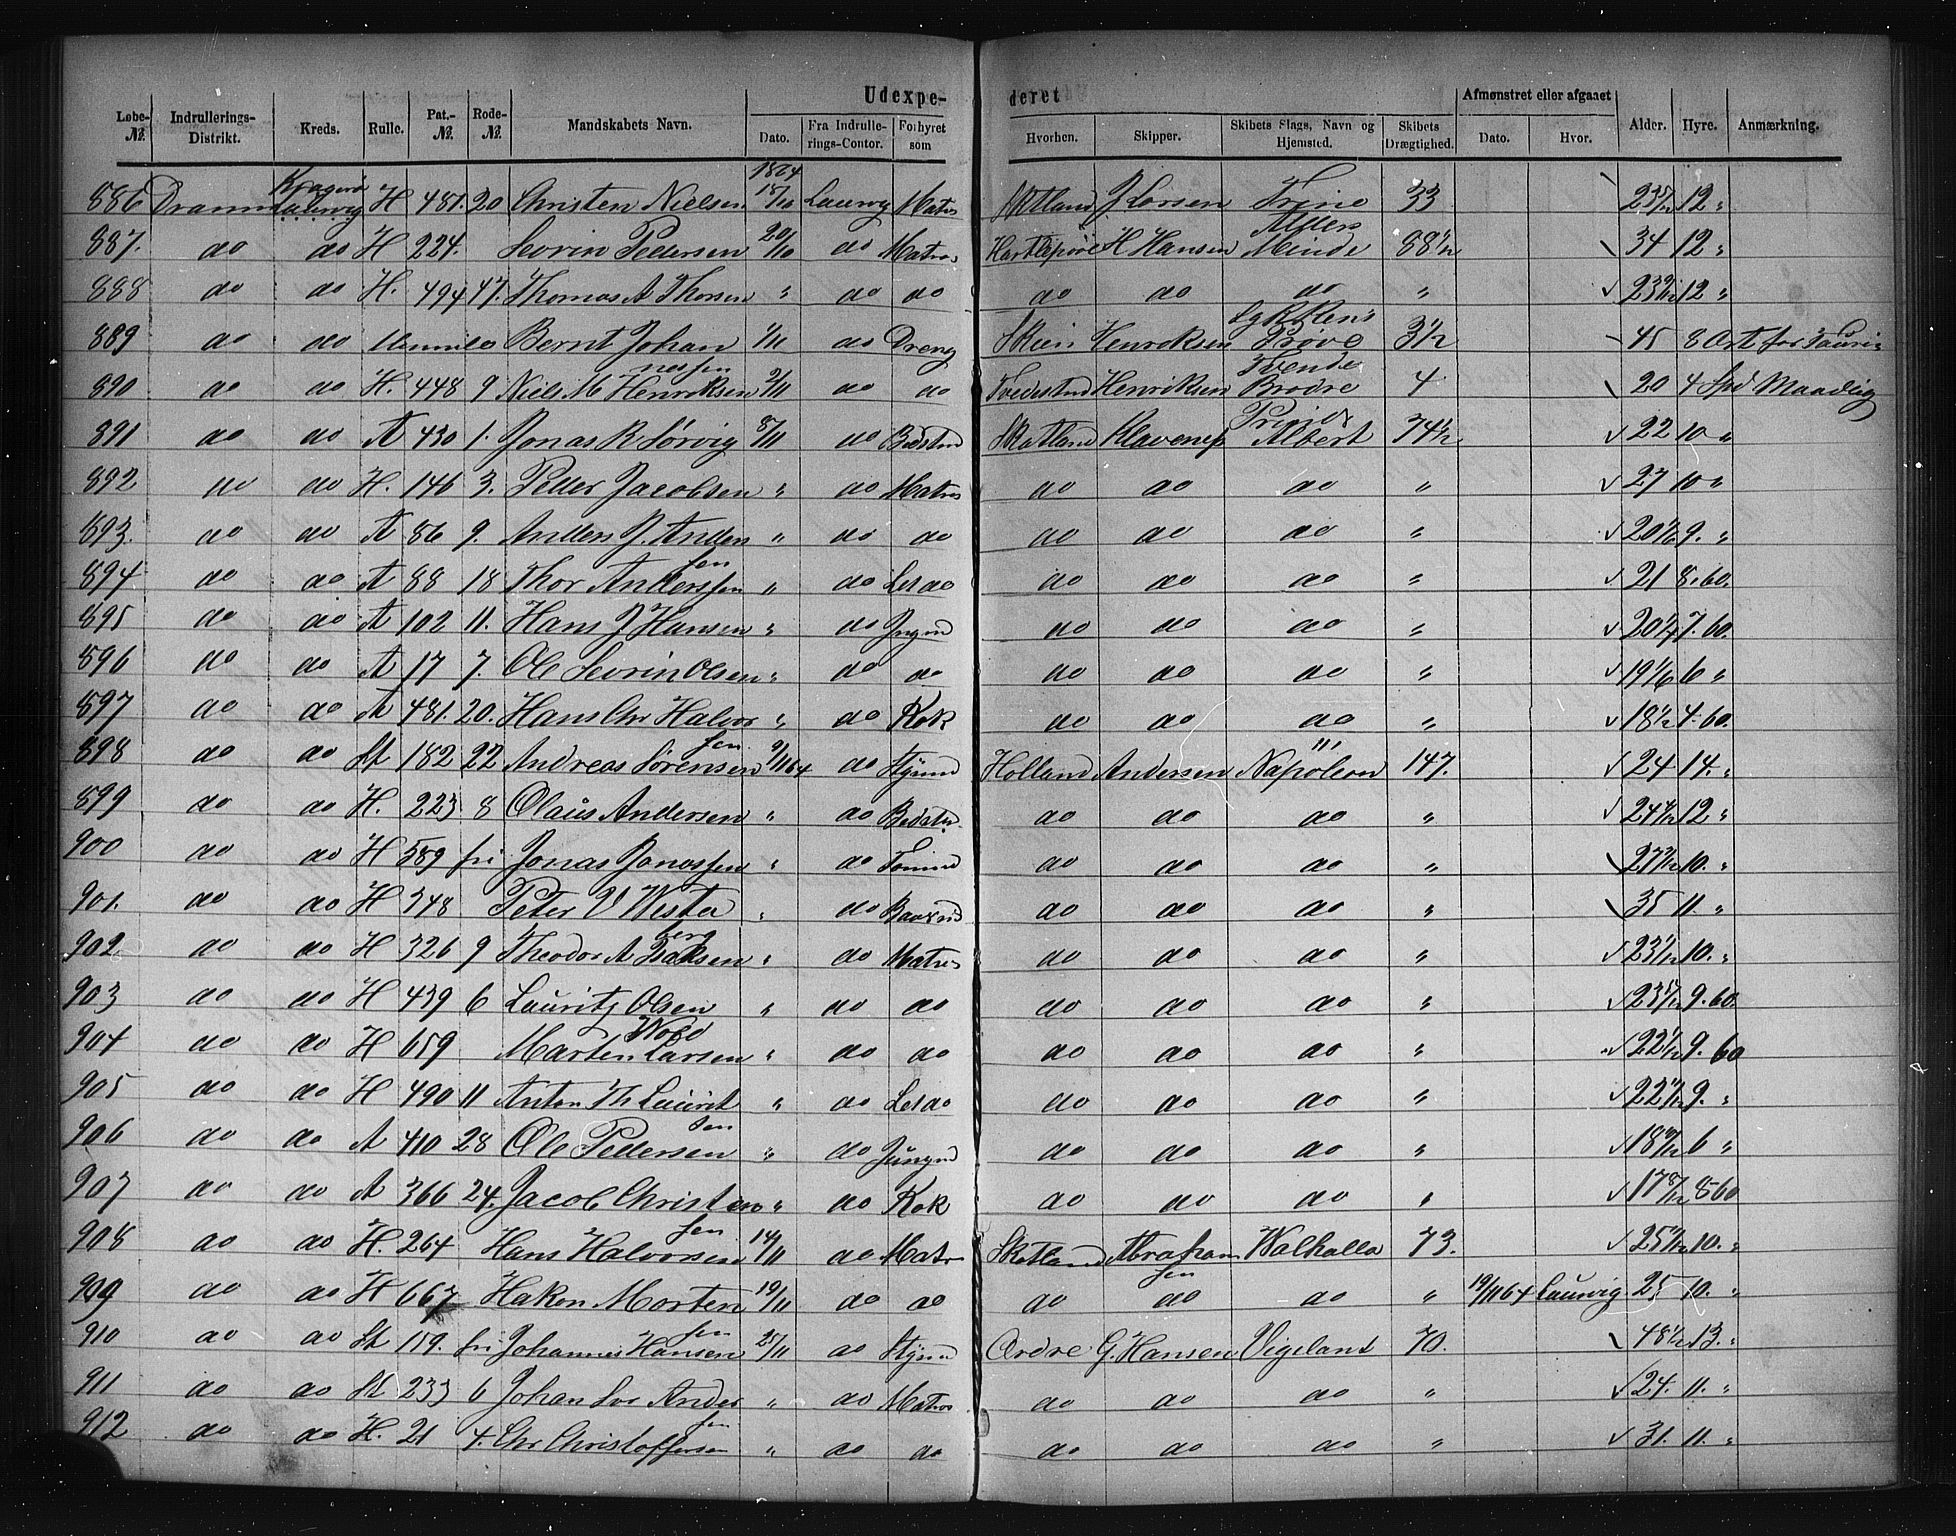 Udexpe-
deret
Afmønstret eller afgaaet
Løbe-№ Indrullerings-Distrikt. Kreds. Rulle. Pat.-№ Rode-№ Mandskabets Navn. Dato. Fra Indrullerings-Contor. Forhyret som Hvorhen. Skipper. Skibets Slags, Navn og Hjemsted. Skibets Drægtighed. Dato. Hvor. Alder. Hyre. Anmærkning.
1864
886 Dramm Kragerø Laurvig H 481. 20 Christen Nielsen 15/10 Laurvig Matros Skotland J Larsen Trine 33 23 5/12 12 "
887. do do H 224. Sevrin Pedersen 20/10 do Matros Hartlepool H Hansen Allers Minde 88½ 34 12 "
888 do do H. 494 47. Thomas A Thorsen " do do do do do " 23 9/12 12 "
889 do do Bernt Johannessen 1/11 do Dreng Skien Henriksen Lykkens Prøve 3½ 45 8 Ort for
890 do do H. 448 9 Niels M Henriksen 2/11 do do Tvedestrand Henriksen Tvende Brødre 4 20 4 Spd Maadlig
891 do do A 430 1. Jonas R Sørvig 8/11 do Bedstm Skotland Klavenes Prinds Albert 74½ 22 10 "
892 do do H. 146 3. Peder Jacobsen " do Matros do do do " 27 10 "
893. do do A 86 9. Anders J. Andersen " do do do do do " 20½ 9. "
894 do do A 88 18 Thor Anderssen " do Letdo do do do " 21 8.60.
895 do do A 102 11. Hans J Hansen " do Jngmd do do do " 20¼ 7.60.
896 do do A 17 7. Ole Sevrin Olsen " do do do do do " 19 1/6 6 "
897 do do A 481. 20. Hans Chr Halvorsen " do Kok do do do " 18½ 4.60.
898 do do St 182 22 Andreas Sørensen 9/11 64 do Styrmd Holland Andersen Napoleon III 147. 24 14. "
899 do do H. 223 8 Olaus Andersen " do Bedstm do do do " 12 "
900 do do H 589 fri Jonas Jonassen " do Tømmd do do do " 10. "
901. do do H 348 Peter V Westerberg " do do do do " 35 11. "
902 do do H 326 9 Theodor A Isaksen " do Matros do do do " 23 1/12 10. "
903 do do H 439 6 Lauritz Olsen " do do do do do " 23 5/12 9.60.
904 do do H 659 Marten Larsen Wold " do do do do do " 22 1/12 9.60
905 do do H 490 11 Anton Th Lauritsen " do Letdo do do do " 9. "
906 do do A 410 28 Ole Pedersen " do Jungmd do do do " 6 "
907 do do A 366 24. Jacob Christensen " do Kok do do do " 17 8/12 860
908 do do H. 264 Hans Halvorsen 14/11 do Matr Skotland Abrahamsen Walhalla 73. 10. "
909 do do H 667 Hakon Mortensen 19/11 do do do do do " 19/11 64 Laurvig 25 10. "
910 do do St 159. fri Johannes Hansen 25/11 do Styrmd Ordre G. Hansen Vigeland 70. 48½ 13. "
911 do do St 233 6 Johan Sør Andersen " do Matros do do do " 24. 11. "
912 do do H. 21 4. Chr Christoffersen " do do do do do " 31. 11. "